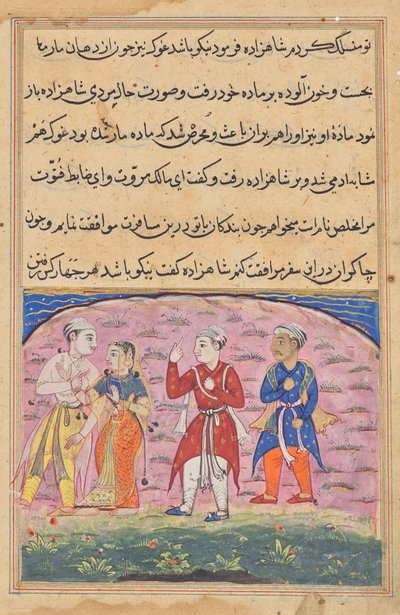 تو منسلک کردم شاهزاده فرمود نیکو باشد غوک نیز چون از دهان مار رها
بجست و خون آلوده بر ماده خود رفت و صورت حال مردی شاهزاده باز
نمود مادهٔ او نیز او را هم بران باعث و محرض شد که ماده مار شده بود غوک هم
مشابه آدمی شد و بر شاهزاده رفت و گفت ای مالک مروت و ای ضابط فتوت
مرا مخلص نام است میخواهم چون بندگان با تو درین مسافرت موافقت نمایم و چون
چاکران در این سفر مرافقت کنم شاهزاده گفت نیکو باشد هر چهار کس رفتن